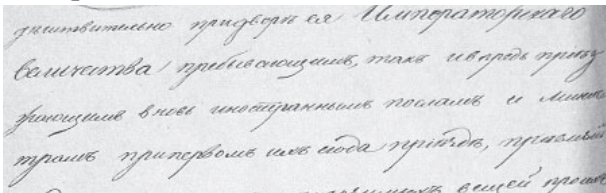 действительно придворѣ ея Императорскаго
величества пребывающимъ, такъ ивпредь приѣз
жающимъ вновь иностраннымъ посламъ и минис
трамъ припервомъ ихъ сюда приѣздѣ,
вещей